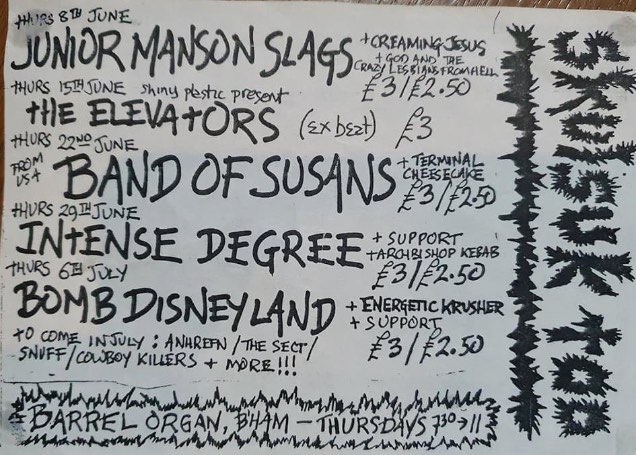 THURS 8TH JUNE
JUNIOR MANSON SLAGS
+ CREAMING JESUS
+ GOD AND THE
CRAZY LESBIANS FROM HELL
£3/£2.50
THURS 15TH JUNE shiny plastic present
tHE ELEVAtORS (Ex bEat) £3
THURS 22ND JUNE
FROM
USA
BAND OF SUSANS
+ TERMINAL
CHEESECAKE
£3/£2.50
THURS 29TH JUNE
INtENSE DEGREE
+ SUPPORT
+ ARCHBISHOP KEBAB
£3/£2.50
THURS 6TH JULY
BOMB DISNEYLAND
+ ENERGETIC KRUSHER
+ SUPPORT
£3/£2.50
tO COME IN JULY : ANHREFN / THE SECT /
SNUFF / COWBOY KILLERS + MORE !!!
BARREL ORGAN, B'HAM — THURSDAYS 7.30 → 11
SKUISUK TOO